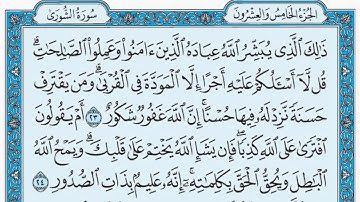 الجزء الخامس والعشرون
سورة الشورى
ذَٰلِكَ ٱلَّذِى يُبَشِّرُ ٱللَّهُ عِبَادَهُ ٱلَّذِينَ ءَامَنُوا۟ وَعَمِلُوا۟ ٱلصَّٰلِحَٰتِ ۗ
قُل لَّآ أَسْـَٔلُكُمْ عَلَيْهِ أَجْرًا إِلَّا ٱلْمَوَدَّةَ فِى ٱلْقُرْبَىٰ ۗ وَمَن يَقْتَرِفْ
حَسَنَةً نَّزِدْ لَهُۥ فِيهَا حُسْنًا ۚ إِنَّ ٱللَّهَ غَفُورٌ شَكُورٌ ٢٣ أَمْ يَقُولُونَ
ٱفْتَرَىٰ عَلَى ٱللَّهِ كَذِبًا ۖ فَإِن يَشَإِ ٱللَّهُ يَخْتِمْ عَلَىٰ قَلْبِكَ ۗ وَيَمْحُ ٱللَّهُ
ٱلْبَٰطِلَ وَيُحِقُّ ٱلْحَقَّ بِكَلِمَٰتِهِۦٓ ۚ إِنَّهُۥ عَلِيمٌۢ بِذَاتِ ٱلصُّدُورِ ٢٤